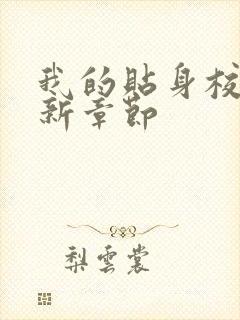 我的貼身校
新章節
梨雲裳